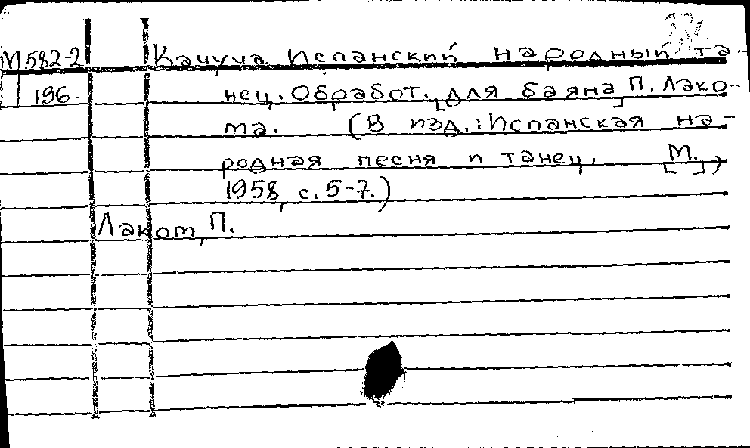 М 582-2 Качуча Испанский народный та-
196 нец. Обработ. [для баяна] П. Лако-
ма. (В изд.: Испанская на-
родная песня и танец. [М.],
1958, с. 5-7.)
Лаком, П.